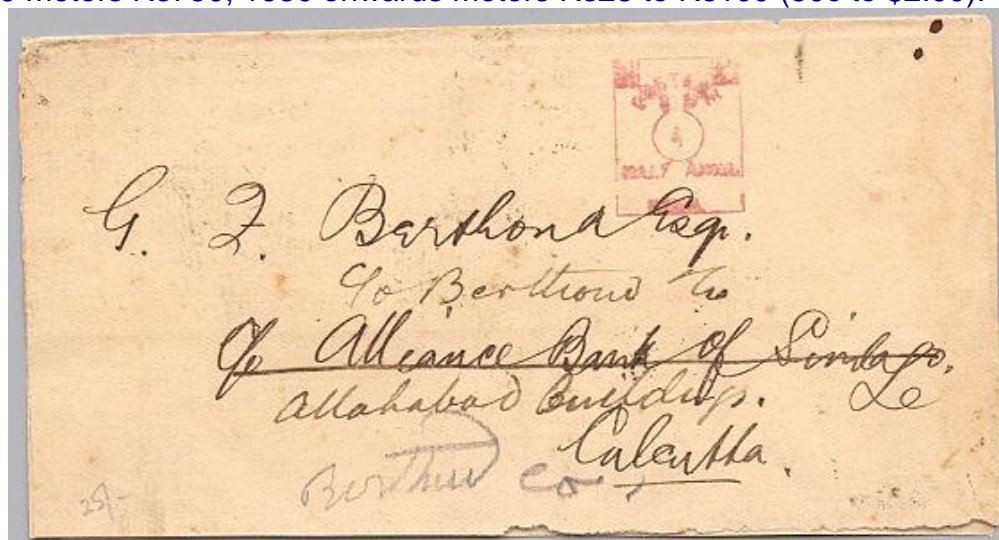 meters Rs. 750, 1950 onwards meters Rs25 to Rs100 (50c to $2.00).
HALF ANNA
G. F. Berthond Esq.
c/o Berthond
c/o Alliance Bank of Simla
Allahabad Buildings.
Calcutta.
Co.
25/-